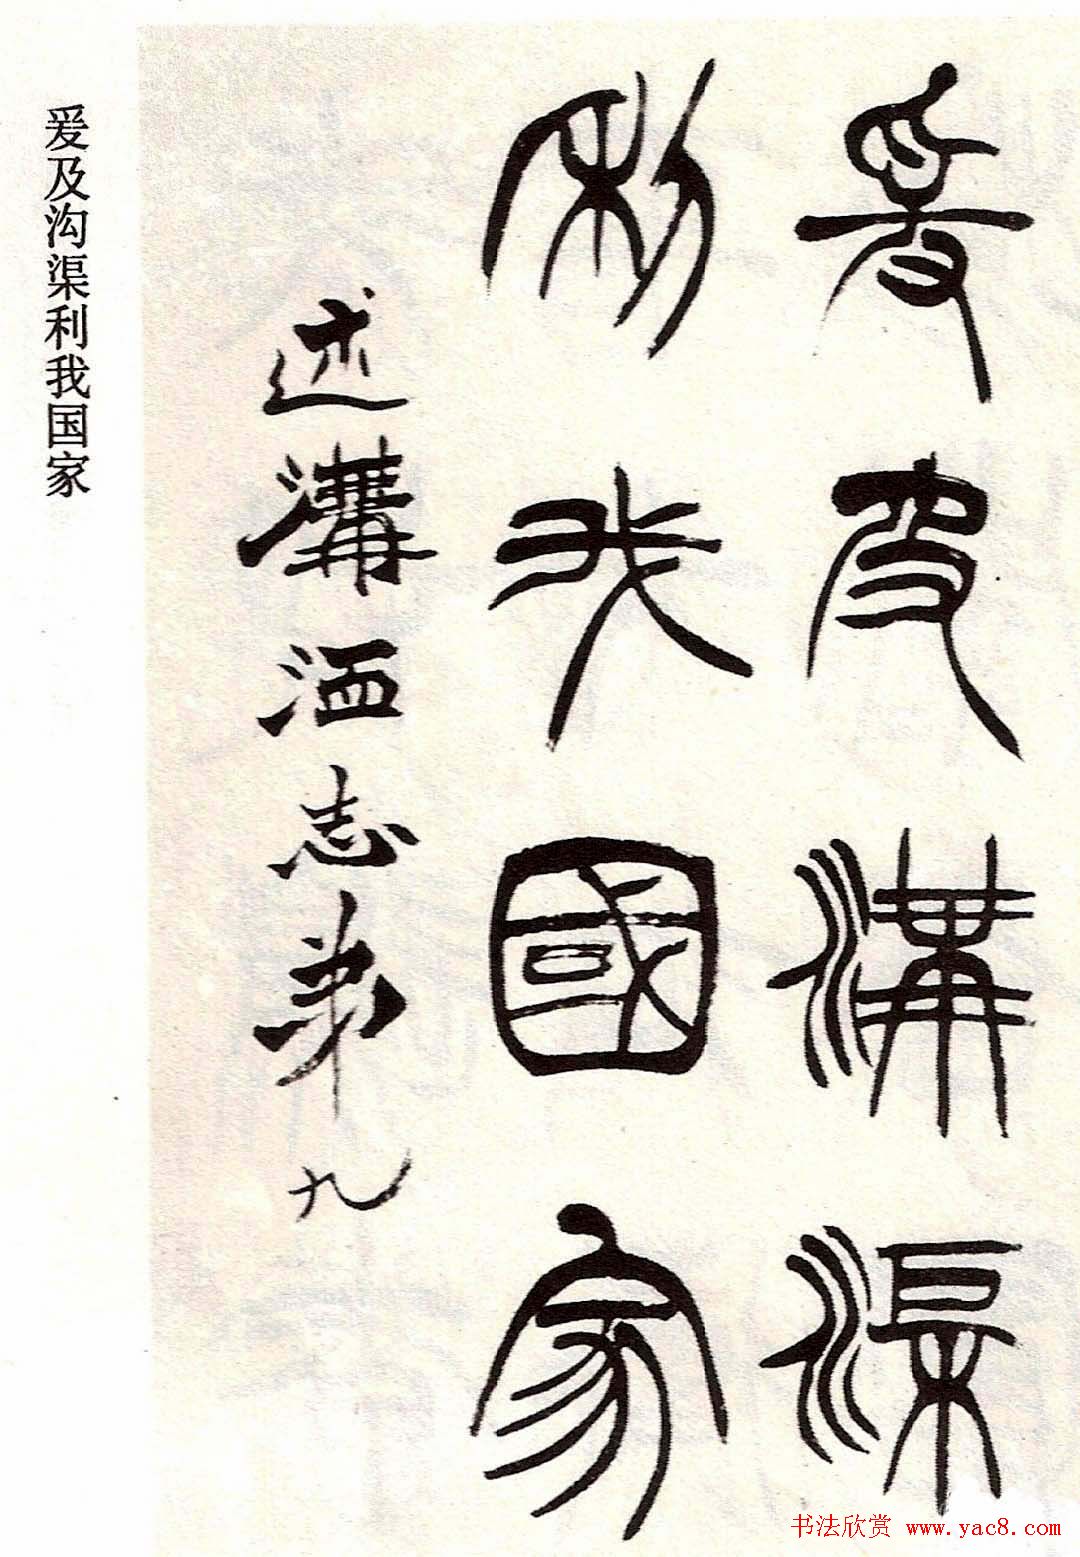 爰及溝渠
利我國家
述溝洫志弟九
爰及沟渠利我国家
书法欣赏 www.yac8.com